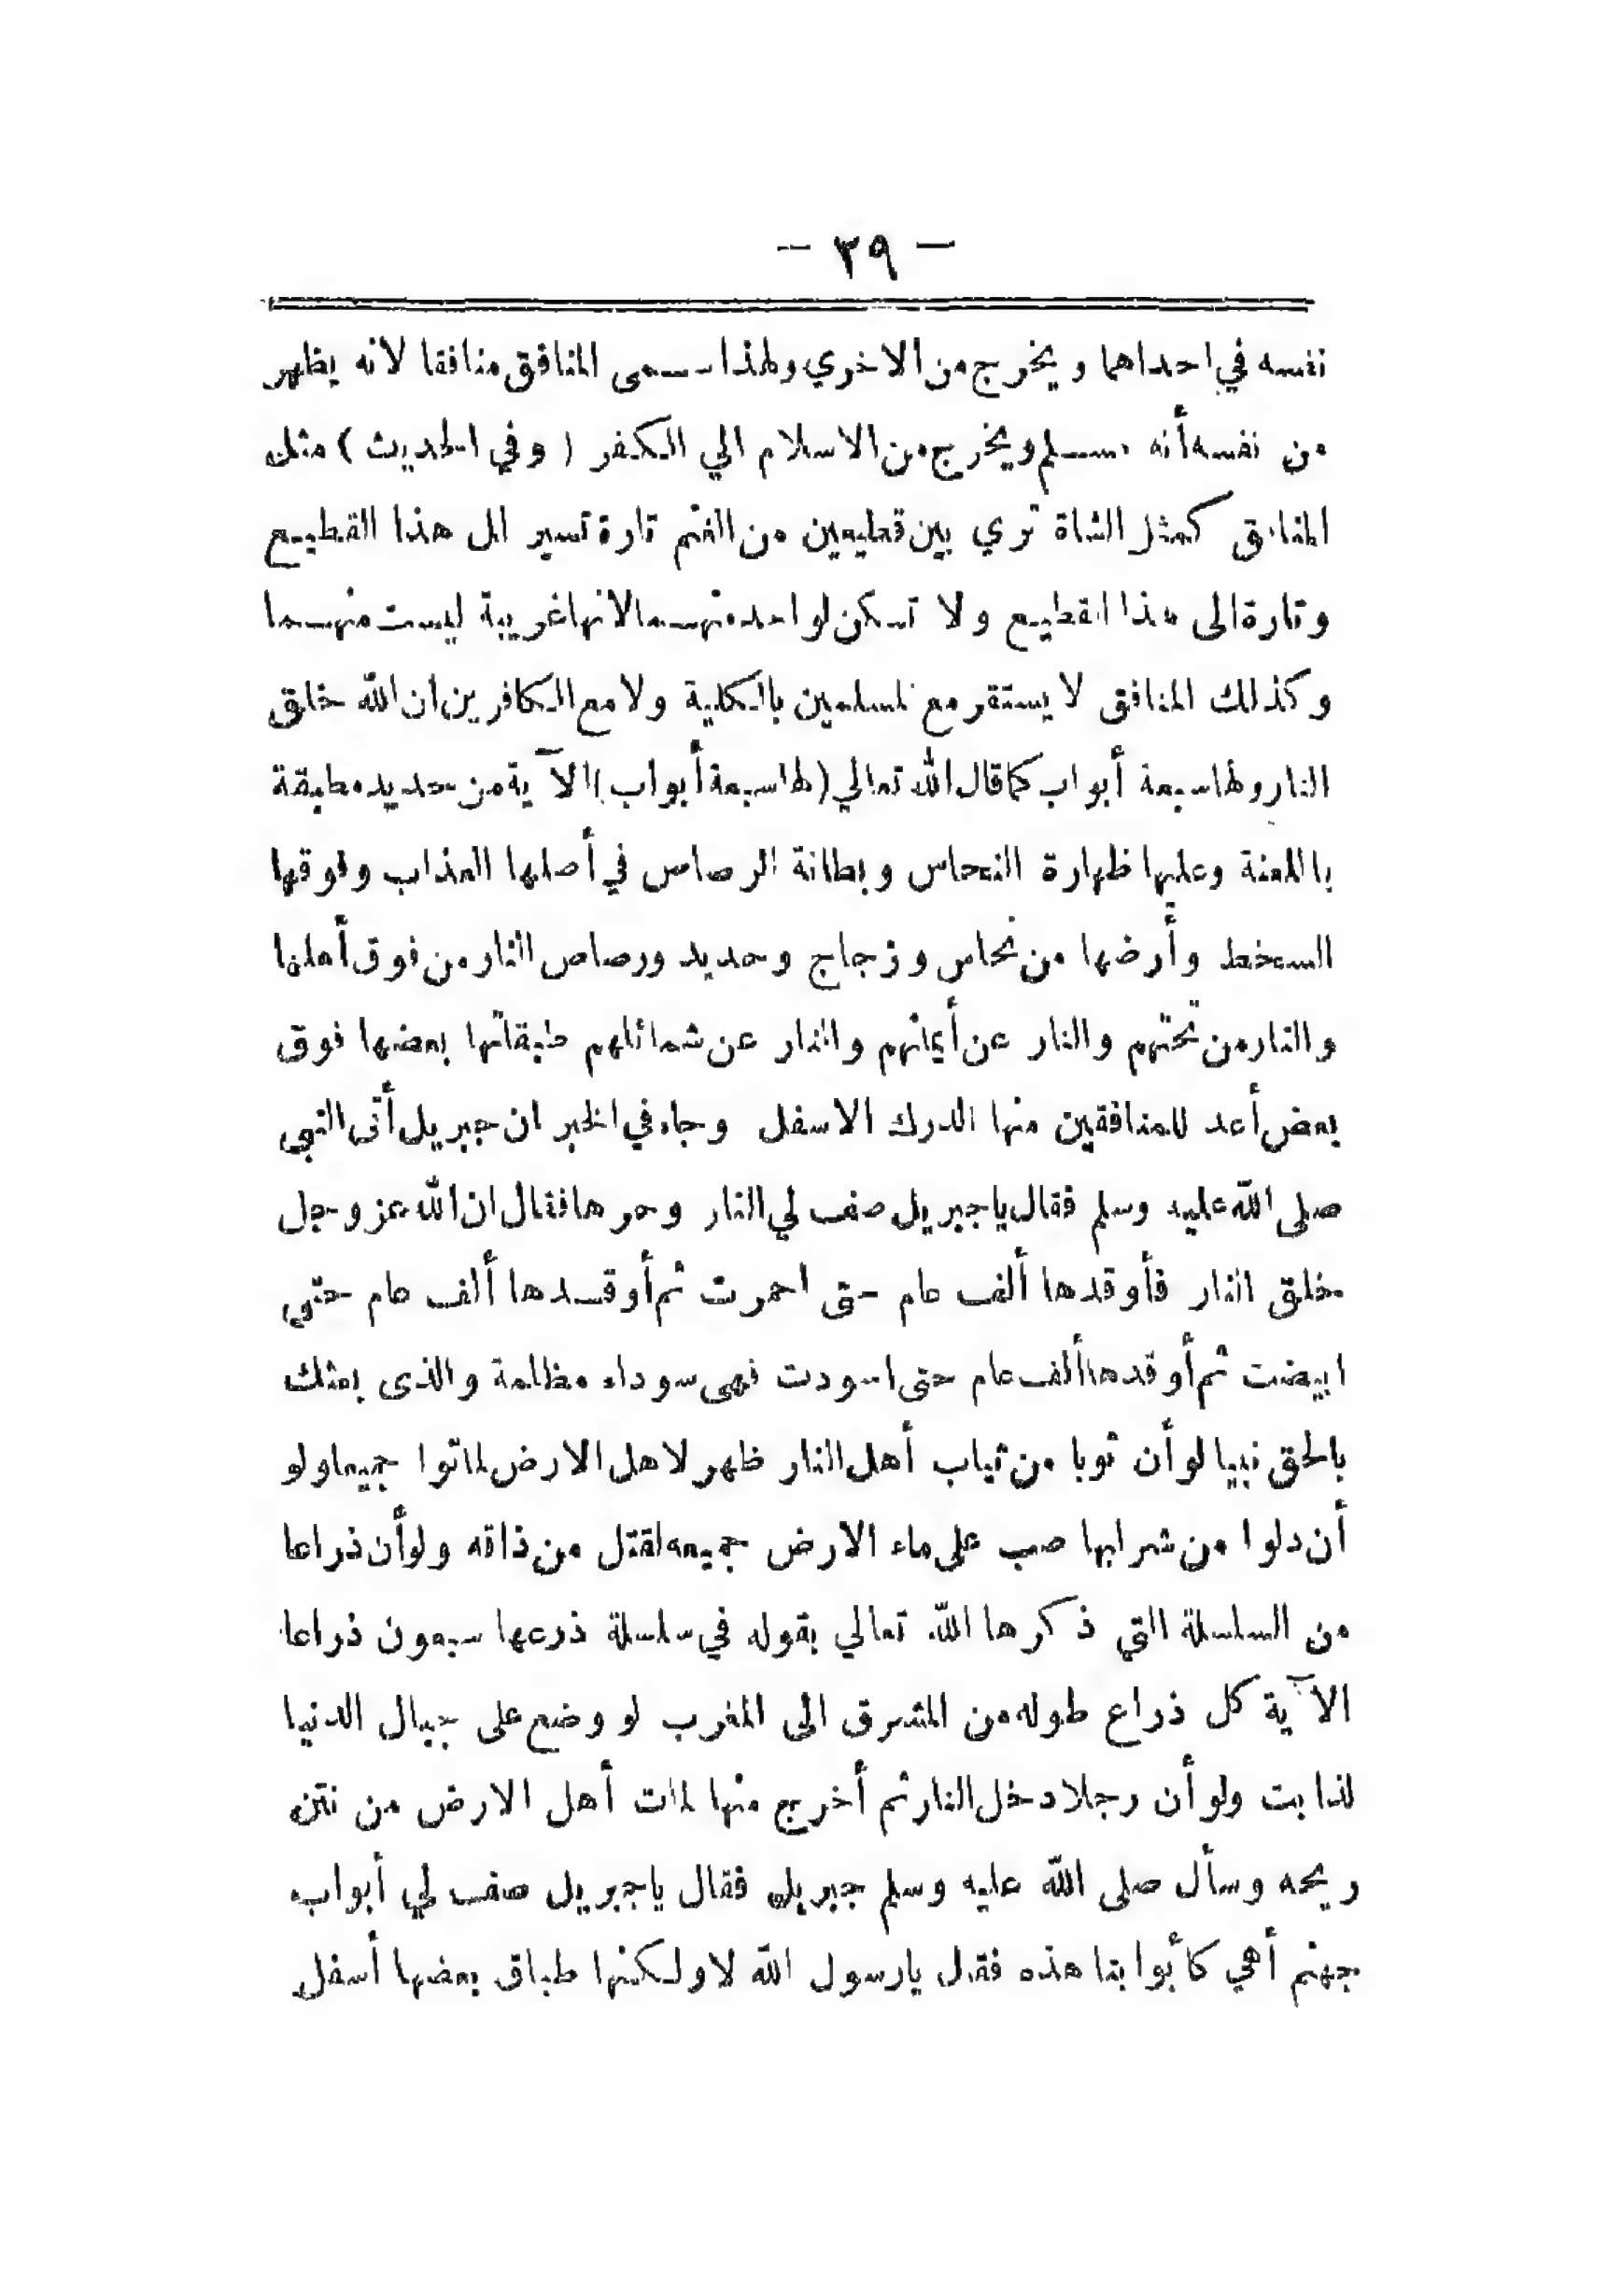 – ٣٩ –
نفسه في احداهما ويخرج من الاخري ولهذا سمى المنافق منافقا لانه يظهر
من نفسه أنه مسلم ويخرج من الاسلام الي الكفر (وفي الحديث) مثل
المنافق كمثل الشاة تري بين قطيعين من الغنم تارة تسير الى هذا القطيع
وتارة الى هذا القطيع ولا تسكن لواحد منهما لانها غريبة ليست منهما
وكذلك المنافق لا يستقر مع المسلمين بالكلية ولا مع الكافرين ان الله خلق
النار ولها سبعة أبواب كما قال الله تعالي (لها سبعة أبواب) الآية من حديد مطبقة
باللعنة وعليها ظهارة النحاس وبطانة الرصاص في أصلها العذاب وفوقها
السخط وأرضها من نحاس وزجاج وحديد ورصاص النار من فوق أهلها
والنار من تحتهم والنار عن أيمانهم والنار عن شمائلهم طبقاتها بعضها فوق
بعض أعد للمنافقين منها الدرك الاسفل وجاء في الخبر ان جبريل أتى النبي
صلى الله عليه وسلم فقال ياجبريل صف لي النار وحرها فقال ان الله عز وجل
خلق النار فأوقدها ألف عام حتى احمرت ثم أوقدها ألف عام حتى
ابيضت ثم أوقدها ألف عام حتى اسودت فهى سوداء مظلمة والذى بعثك
بالحق نبيا لو أن ثوبا من ثياب أهل النار ظهر لاهل الارض لماتوا جميعا ولو
أن دلوا من شرابها صب على ماء الارض جميعه لقتل من ذاقه ولو أن ذراعا
من السلسلة التي ذكرها الله تعالي بقوله في سلسلة ذرعها سبعون ذراعا
الآية كل ذراع طوله من المشرق الى المغرب لو وضع على جبال الدنيا
لذابت ولو أن رجلا دخل النار ثم أخرج منها لمات أهل الارض من نتن
ريحه وسأل صلى الله عليه وسلم جبريل فقال ياجبريل صف لي أبواب
جهنم أهي كأبوابنا هذه فقال يارسول الله لا ولكنها طباق بعضها أسفل